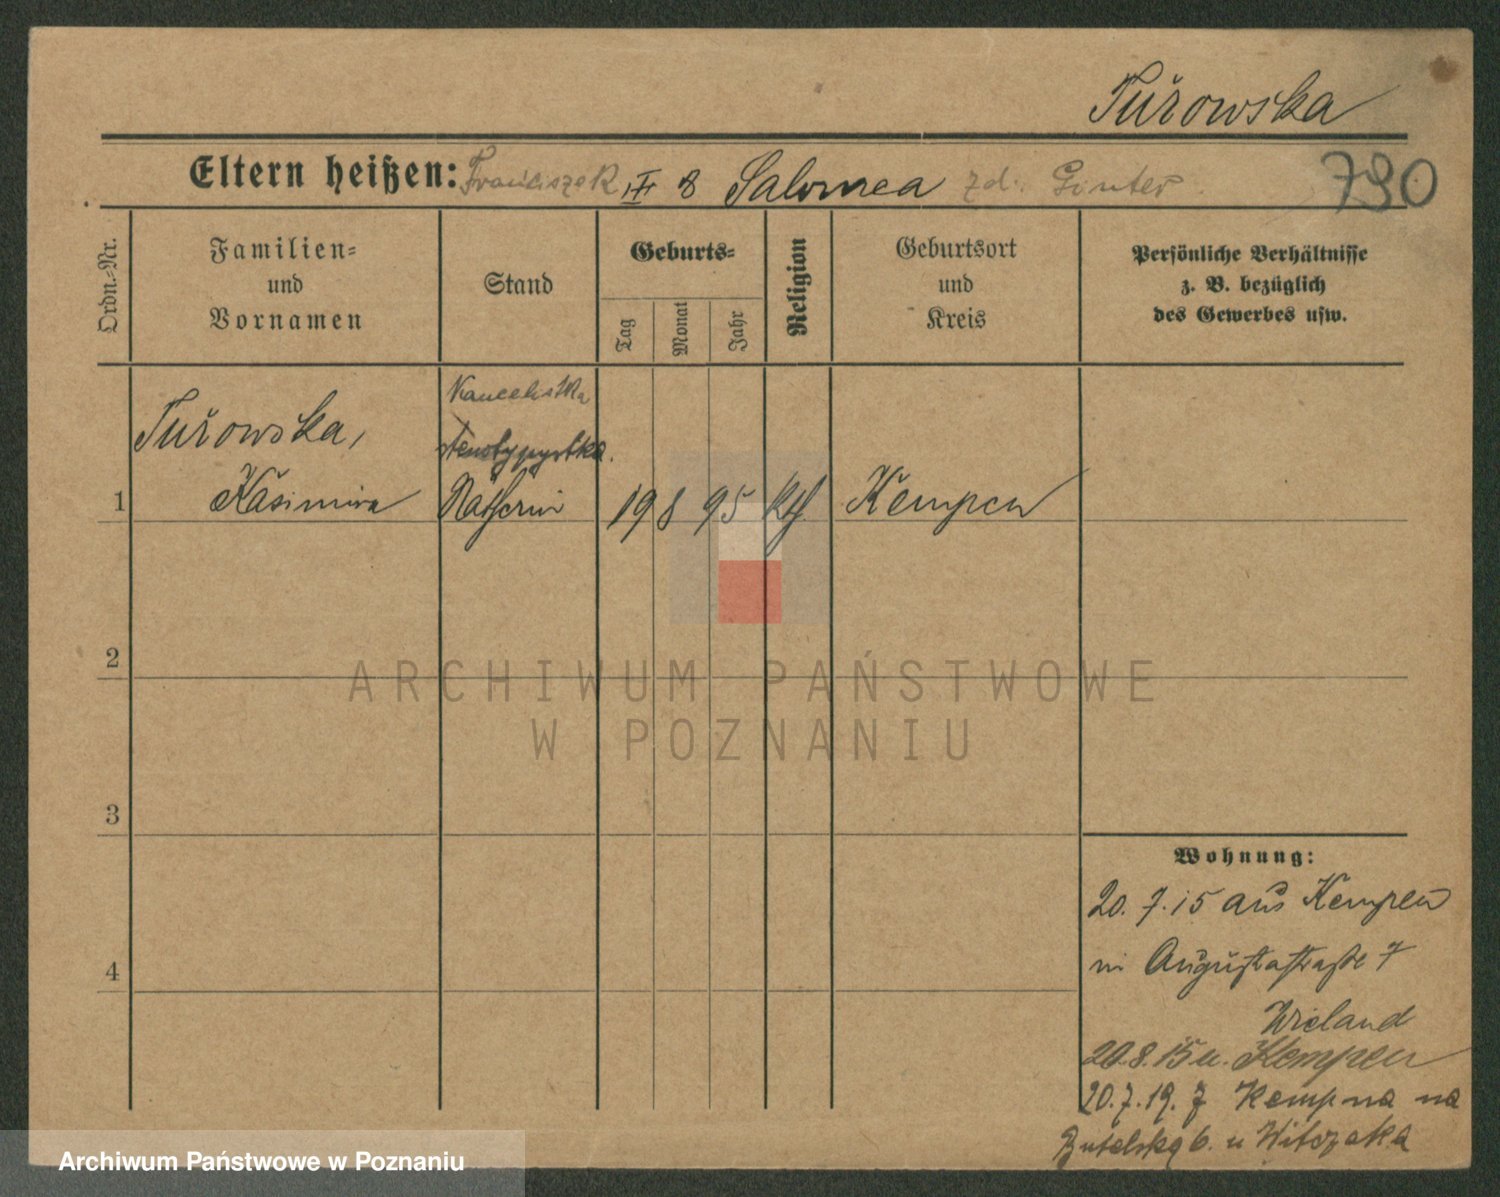 Turowska
Eltern heißen: Franciszek IF & Salomea zd. Ginter
790
Ordn.-Nr.
Familien-
und
Vornamen
Stand
Geburts-
Tag
Monat
Jahr
Religion
Geburtsort
und
Kreis
Persönliche Verhältnisse
z. B. bezüglich
des Gewerbes usw.
Kancelistka
Turowska,
stenotypystka.
1 Kasimira Näherin 19 8 95 kth Kempen
2
3
4
Wohnung:
20. 7. 15 aus Kempen
in Augustastraße 7
Wieland
20.8.15 n. Kempen
20.7.19. z Kempna na
6. u Witczaka
ARCHIWUM PAŃSTWOWE
W POZNANIU
Archiwum Państwowe w Poznaniu